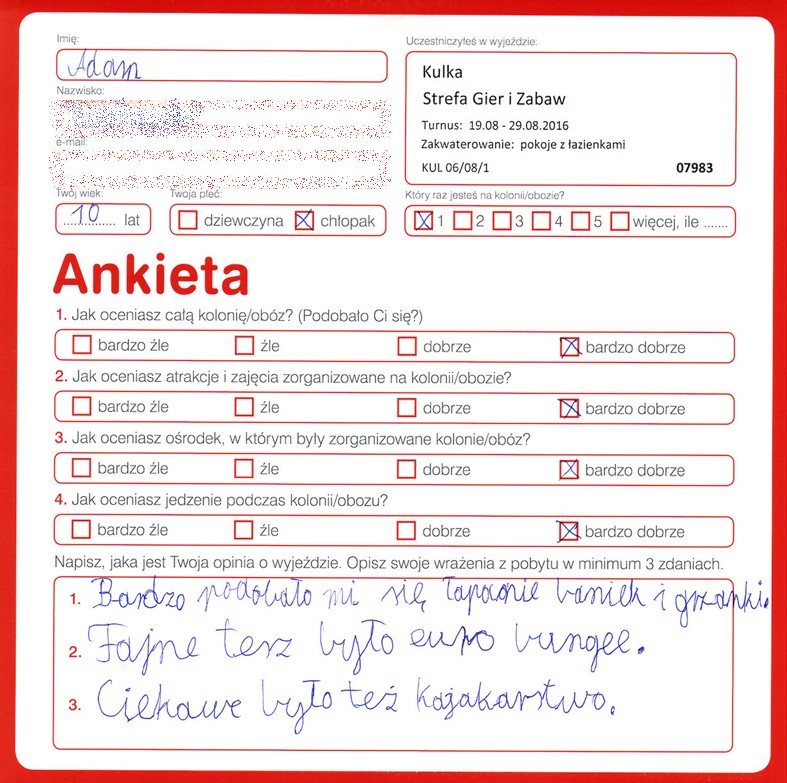 Imię:
Adam
Nazwisko:
e-mail:
Twój wiek:
10 lat
Twoja płeć:
dziewczyna chłopak
Uczestniczyłeś w wyjeździe:
Kulka
Strefa Gier i Zabaw
Turnus: 19.08 - 29.08.2016
Zakwaterowanie: pokoje z łazienkami
KUL 06/08/1 07983
Który raz jesteś na kolonii/obozie?
1 2 3 4 5 więcej, ile .......
Ankieta
1. Jak oceniasz całą kolonię/obóz? (Podobało Ci się?)
bardzo źle źle dobrze bardzo dobrze
2. Jak oceniasz atrakcje i zajęcia zorganizowane na kolonii/obozie?
bardzo źle źle dobrze bardzo dobrze
3. Jak oceniasz ośrodek, w którym były zorganizowane kolonie/obóz?
bardzo źle źle dobrze bardzo dobrze
4. Jak oceniasz jedzenie podczas kolonii/obozu?
bardzo źle źle dobrze bardzo dobrze
Napisz, jaka jest Twoja opinia o wyjeździe. Opisz swoje wrażenia z pobytu w minimum 3 zdaniach.
1. Bardzo podobało mi się łapanie baniek i grzanki.
2. Fajne tesz było euro bungee.
3. Ciekawe było też kajakarstwo.